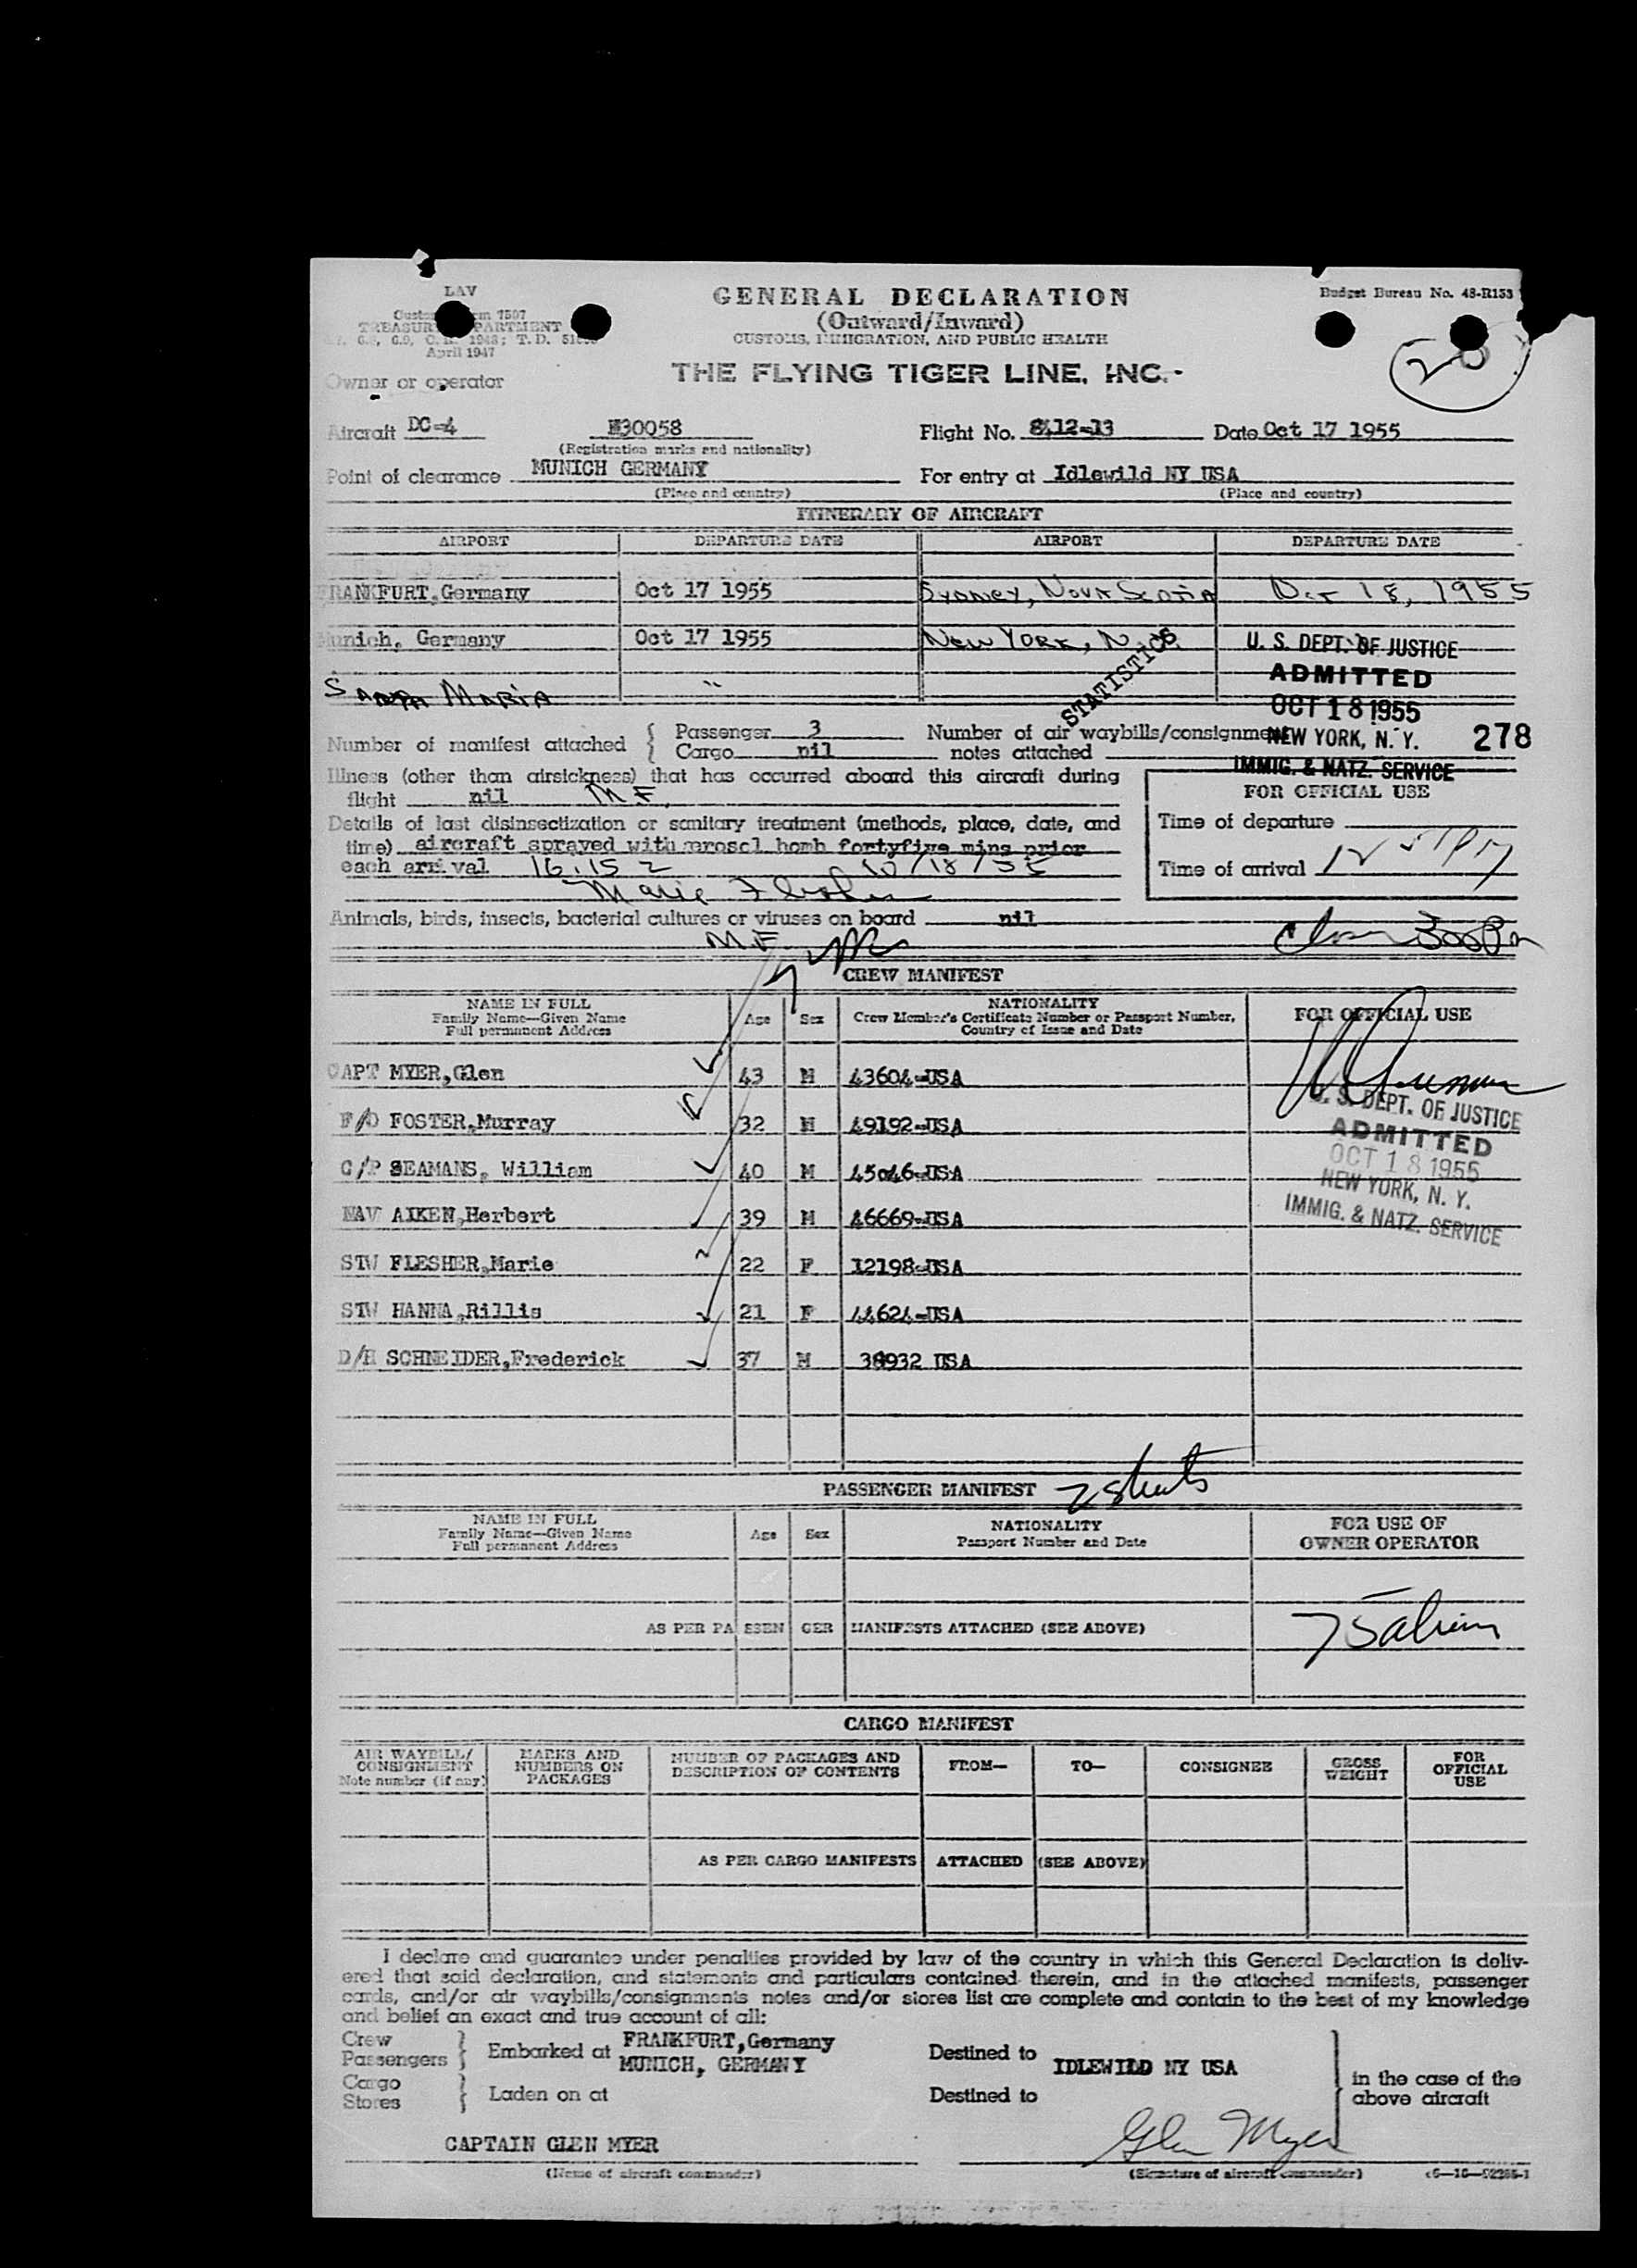 LAV
GENERAL DECLARATION
Budget Bureau No. 48-R133
(Outward/Inward)
TREASURY DEPARTMENT
CUSTOMS, IMMIGRATION, AND PUBLIC HEALTH
April 1947
THE FLYING TIGER LINE, INC.
20
Owner or operator
Aircraft DC-4 N30058 Flight No. 8412-13 Date Oct 17 1955
(Registration marks and nationality)
Point of clearance MUNICH GERMANY For entry at Idlewild NY USA
(Place and country) (Place and country)
ITINERARY OF AIRCRAFT
AIRPORT DEPARTURE DATE AIRPORT DEPARTURE DATE
FRANKFURT,Germany Oct 17 1955 Sydney, Nova Scotia Oct 18, 1955
Munich, Germany Oct 17 1955 New York, N.Y.
Santa Maria "
STATISTICS
U. S. DEPT. OF JUSTICE
ADMITTED
OCT 18 1955
NEW YORK, N. Y.
IMMIG. & NATZ. SERVICE
278
Number of manifest attached { Passenger 3 Number of air waybills/consignment
Cargo nil notes attached
Illness (other than airsickness) that has occurred aboard this aircraft during
flight nil M F
FOR OFFICIAL USE
Details of last disinsectization or sanitary treatment (methods, place, date, and
time) aircraft sprayed with areosel bomb fortyfive mins prior
each arrival 16.15 Z 10/18/55
Marie Flesher
Time of departure
Time of arrival
Animals, birds, insects, bacterial cultures or viruses on board nil
M F
CREW MANIFEST
NAME IN FULL
Family Name—Given Name
Full permanent Address
Age Sex
NATIONALITY
Crew Member's Certificate Number or Passport Number,
Country of Issue and Date
FOR OFFICIAL USE
CAPT MYER,Glen 43 M 43604-USA
F/O FOSTER,Murray 32 M 49192-USA
C/P SEAMANS, William 40 M 45046-USA
NAV AIKEN,Herbert 39 M 46669-USA
STW FLESHER,Marie 22 F 12198-USA
STW HANNA,Rillis 21 F 44624-USA
D/H SCHNEIDER,Frederick 37 M 38932 USA
U. S. DEPT. OF JUSTICE
ADMITTED
OCT 18 1955
NEW YORK, N. Y.
IMMIG. & NATZ. SERVICE
PASSENGER MANIFEST 2 sheets
NAME IN FULL
Family Name—Given Name
Full permanent Address
Age Sex
NATIONALITY
Passport Number and Date
FOR USE OF
OWNER OPERATOR
AS PER PASSENGER MANIFESTS ATTACHED (SEE ABOVE)
CARGO MANIFEST
AIR WAYBILL/
CONSIGNMENT
Note number (if any)
MARKS AND
NUMBERS ON
PACKAGES
NUMBER OF PACKAGES AND
DESCRIPTION OF CONTENTS
FROM— TO— CONSIGNEE
GROSS
WEIGHT
FOR
OFFICIAL
USE
AS PER CARGO MANIFESTS ATTACHED (SEE ABOVE)
I declare and guarantee under penalties provided by law of the country in which this General Declaration is deliv-
ered that said declaration, and statements and particulars contained therein, and in the attached manifests, passenger
cards, and/or air waybills/consignments notes and/or stores list are complete and contain to the best of my knowledge
and belief an exact and true account of all:
Crew
Passengers } Embarked at FRANKFURT,Germany
MUNICH, GERMANY
Destined to IDLEWILD NY USA
Cargo
Stores } Laden on at Destined to
in the case of the
above aircraft
CAPTAIN GLEN MYER Glen Myer
(Name of aircraft commander) (Signature of aircraft commander)